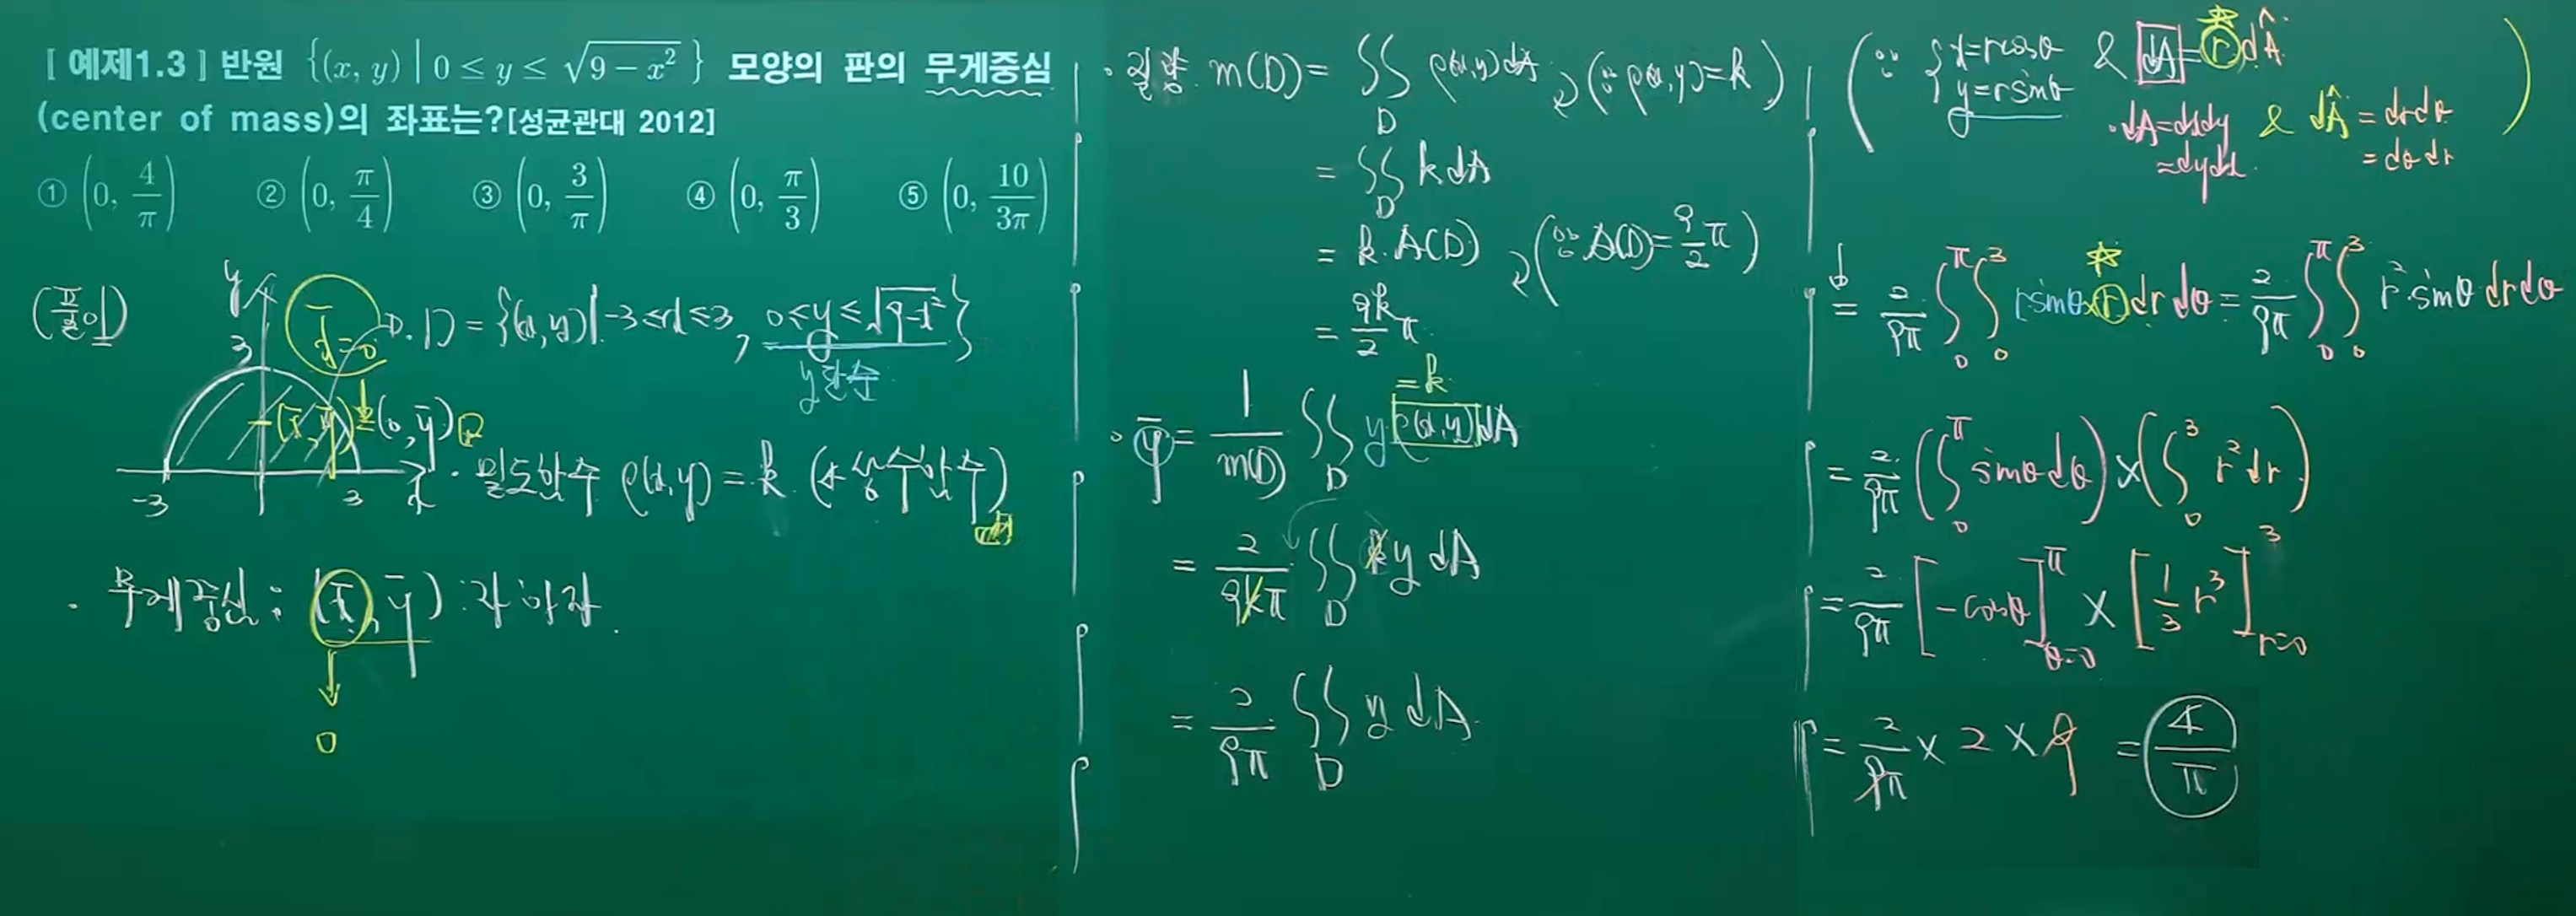 [ 예제1.3 ] 반원 {(x, y) | 0 ≤ y ≤ √(9 − x²)} 모양의 판의 무게중심
(center of mass)의 좌표는?[성균관대 2012]
① (0, 4/π) ② (0, π/4) ③ (0, 3/π) ④ (0, π/3) ⑤ (0, 10/3π)
(풀이)
y
3
x̄=0
D
(x̄, ȳ) = (0, ȳ)
-3
3
x
D = {(x, y) | -3 ≤ x ≤ 3, 0 ≤ y ≤ √(9-x²)}
y 단순
· 밀도함수 ρ(x,y) = k (상수함수)
· 무게중심 : (x̄, ȳ) : 각 하자.
0
· 질량 m(D) = ∬_D ρ(x,y) dA (∵ ρ(x,y) = k)
= ∬_D k dA
= k·A(D) (∵ A(D) = 9/2 π)
= 9k/2 π
= k
· ȳ = 1/m(D) ∬_D y ρ(x,y) dA
= 2/9kπ ∬_D ky dA
= 2/9π ∬_D y dA
(∵ { x=rcosθ y=rsinθ & dA = r dÂ)
· dA=dxdy & dÂ = drdθ
=dydx = dθdr
= 2/9π ∫_0^π ∫_0^3 rsinθ×r dr dθ = 2/9π ∫_0^π ∫_0^3 r²·sinθ drdθ
= 2/9π (∫_0^π sinθdθ) × (∫_0^3 r² dr)
= 2/9π [-cosθ]_{θ=0}^π × [1/3 r³]_{r=0}^3
= 2/9π × 2 × 9 = 4/π